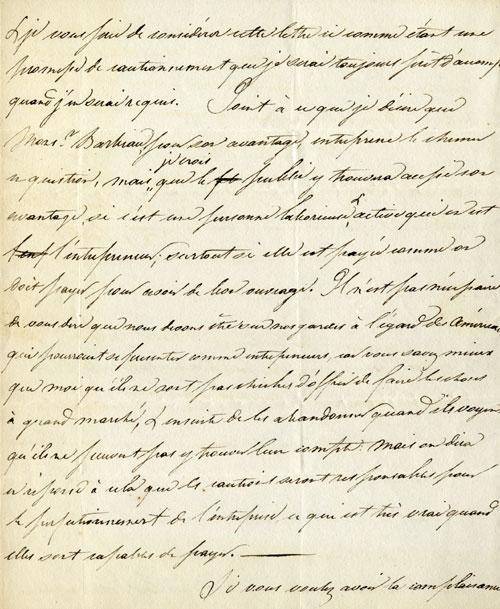 & je vous prie de considérer cette lettre ci comme étant une
promesse de cautionnement que je serai toujours prêt d'accomp
quand j'en serai requis. Joint à ce que je désire que
Mons.r Barbeau pour son avantage, entreprene le chemin
en question, mais je crois que le public y trouvera aussi son
avantage, si c'est une personne laborieuse & active qui en est
l'entrepreneur; surtout si elle est payée comme on
doit payer pour avoir de bon ouvrage. Il n'est pas nécessaire
de vous dire que nous devons être sur nos gardes à l'égard des Améric
qui pourroient se presenter comme entrepreneurs, car vous savez mieux
que moi qu'ils ne sont pas chiches d'offrir de faire les choses
à grand marché, & ensuite de les abandonner quand ils voyent
qu'ils ne peuvent pas y trouver leur compte. Mais on dira
en réponse à cela que les cautions seront responsables pour
le perfectionnement de l'entreprise ce qui est très vrai quand
elles sont capables de payer. —
Si vous voulez avoir la complaisance